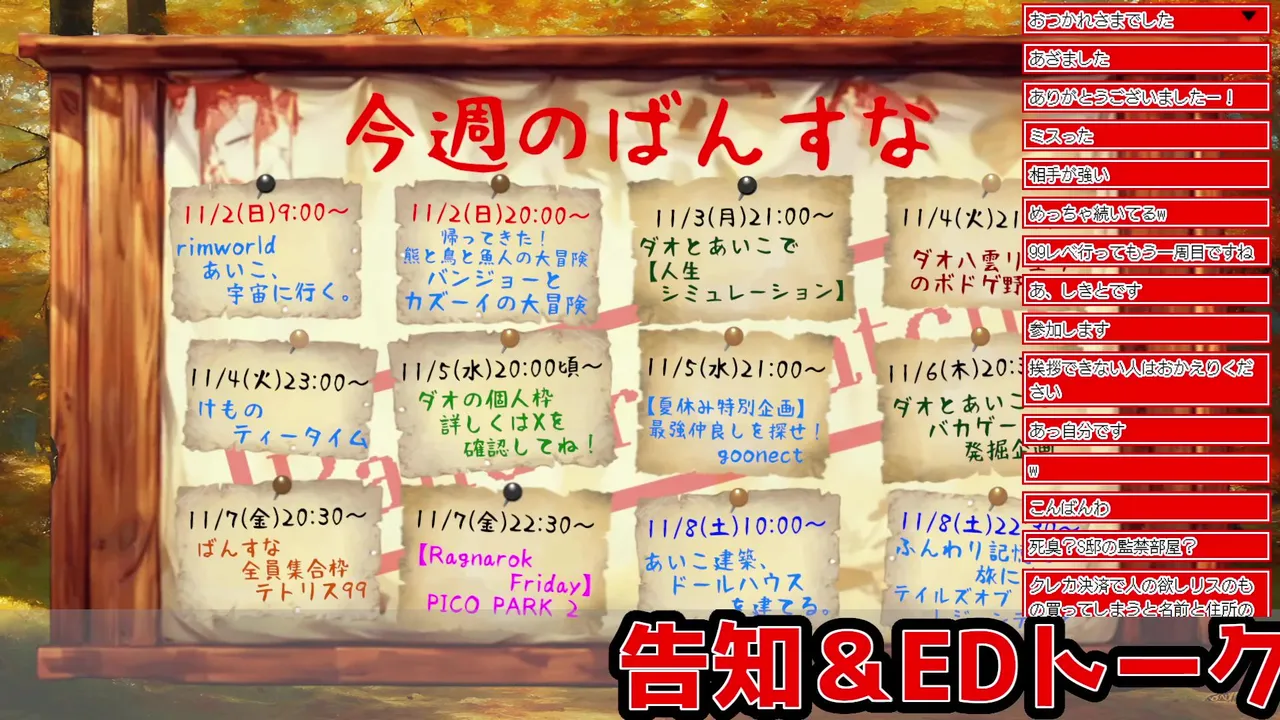 今週のばんすな
11/2(日)9:00～
rimworld
あいこ、
宇宙に行く。
11/2(日)20:00～
帰ってきた！
熊と鳥と魚人の大冒険
バンジョーと
カズーイの大冒険
11/3(月)21:00～
ダオとあいこで
【人生
シミュレーション】
11/4(火)21
ダオ八雲リ
のボドゲ野
11/4(火)23:00～
けもの
ティータイム
11/5(水)20:00頃～
ダオの個人枠
詳しくはXを
確認してね！
11/5(水)21:00～
【夏休み特別企画】
最強仲良しを探せ！
goonect
11/6(木)20:3
ダオとあいこ
バカゲー
発掘企画
11/7(金)20:30～
ばんすな
全員集合枠
テトリス99
11/7(金)22:30～
【Ragnarok
Friday】
PICO PARK 2
11/8(土)10:00～
あいこ建築、
ドールハウス
を建てる。
11/8(土)22:30～
ふんわり記憶
旅に
テイルズオブ
おつかれさまでした
あざました
ありがとうございましたー！
ミスった
相手が強い
めっちゃ続いてるw
99レベ行ってもう一周目ですね
あ、しきとです
参加します
挨拶できない人はおかえりくだ
さい
あっ自分です
w
こんばんわ
死臭？S邸の監禁部屋？
クレカ決済で人の欲しリスのも
の買ってしまうと名前と住所の
告知＆EDトーク